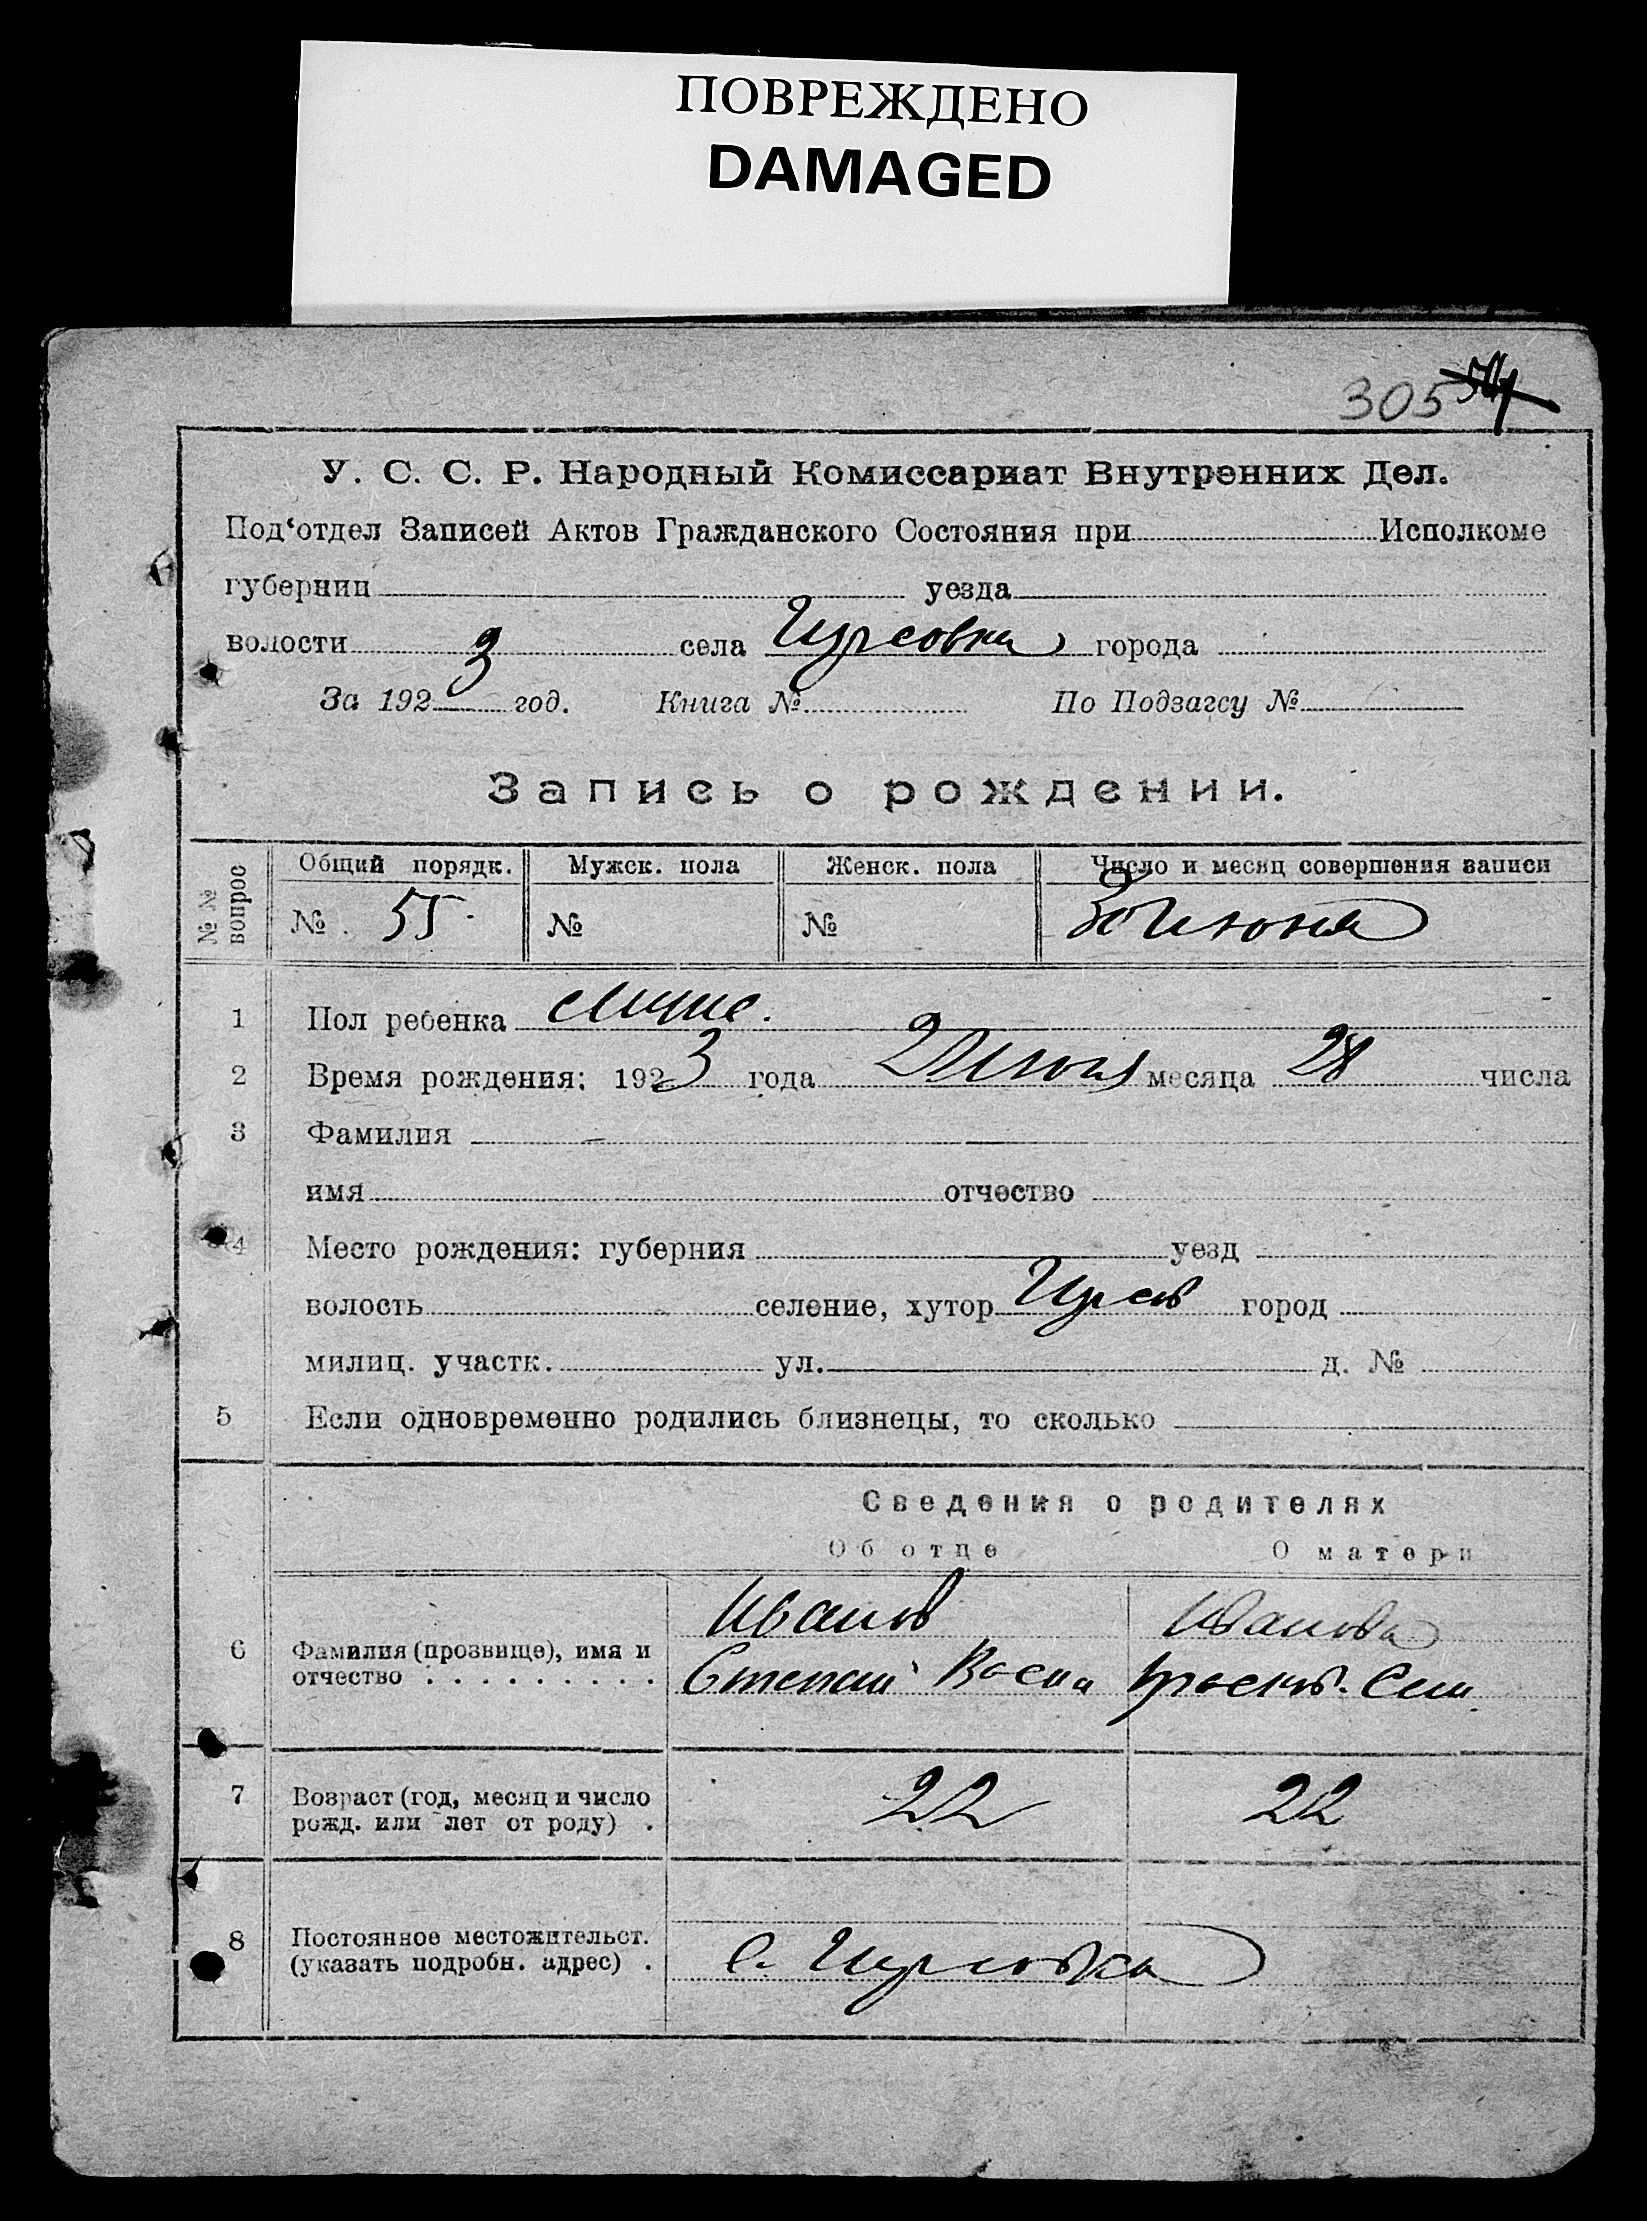 ПОВРЕЖДЕНО
DAMAGED
305
У. С. С. Р. Народный Комиссариат Внутренних Дел.
Под‘отдел Записей Актов Гражданского Состояния при Исполкоме
губернии уезда
волости села города
За 1923 год. Книга № По Подзагсу №
Запись о рождении.
№ № вопрос Общий порядк. Мужск. пола Женск. пола Число и месяц совершения записи
№ 55 № № 30 Июня
1 Пол ребенка
2 Время рождения: 1923 года месяца 28 числа
3 Фамилия
имя отчество
4 Место рождения: губерния уезд
волость селение, хутор город
милиц. участк. ул. д. №
5 Если одновременно родились близнецы, то сколько
Сведения о родителях
Об отце О матери
Иванов Иванова
6 Фамилия (прозвище), имя и
отчество Степан
7 Возраст (год, месяц и число 22 22
рожд. или лет от роду)
8 Постоянное местожительст.
(указать подробн. адрес) с.